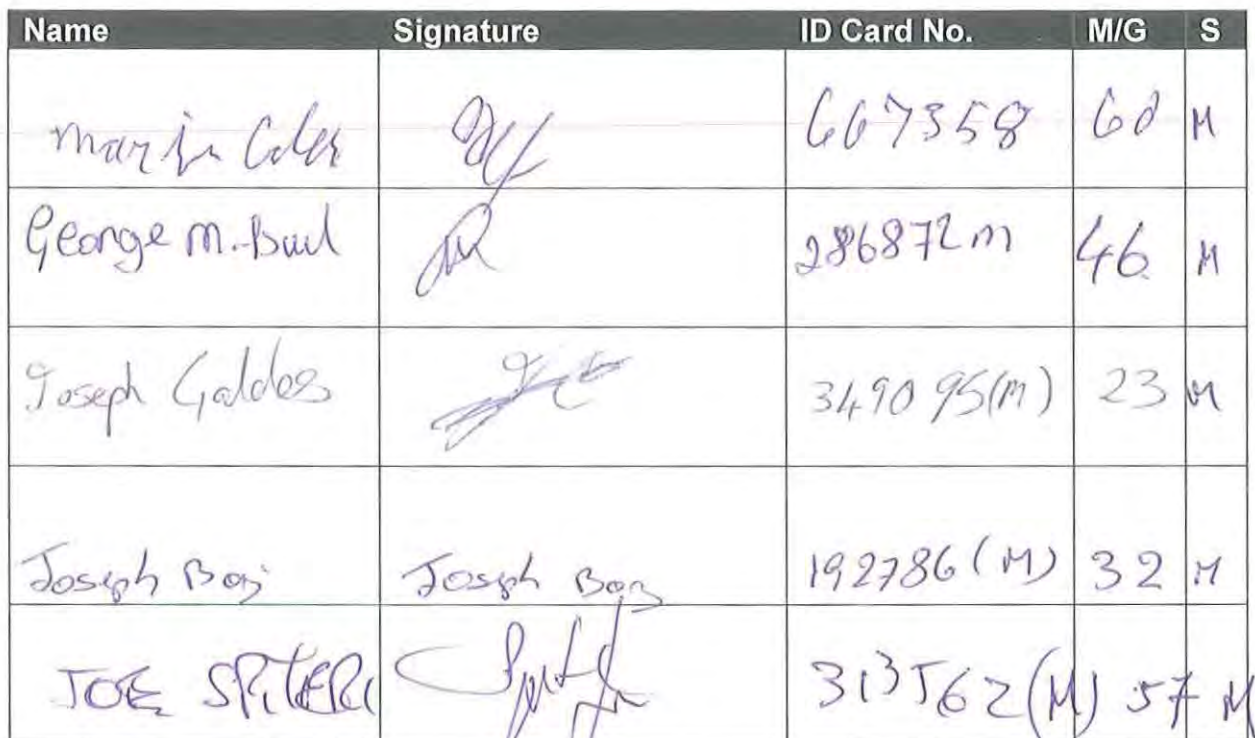 Name Signature ID Card No. M/G S
667358 60 M
George M. 286872m 46 M
Joseph Galdes 349095(M) 23 M
Joseph Joseph 192786 (M) 32 M
JOE SPITERI 313562(M) 57 M